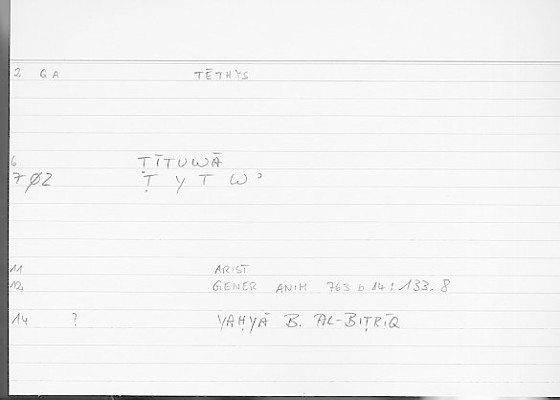 2 QA TĒTHYS
6 ṬĪTUWĀ
7 ØZ Ṭ Y T W ʾ
11 ARIST
12 GENER ANIM 763 b 14 : 133.8
14 ? YAḤYĀ B. AL-BIṬRĪQ